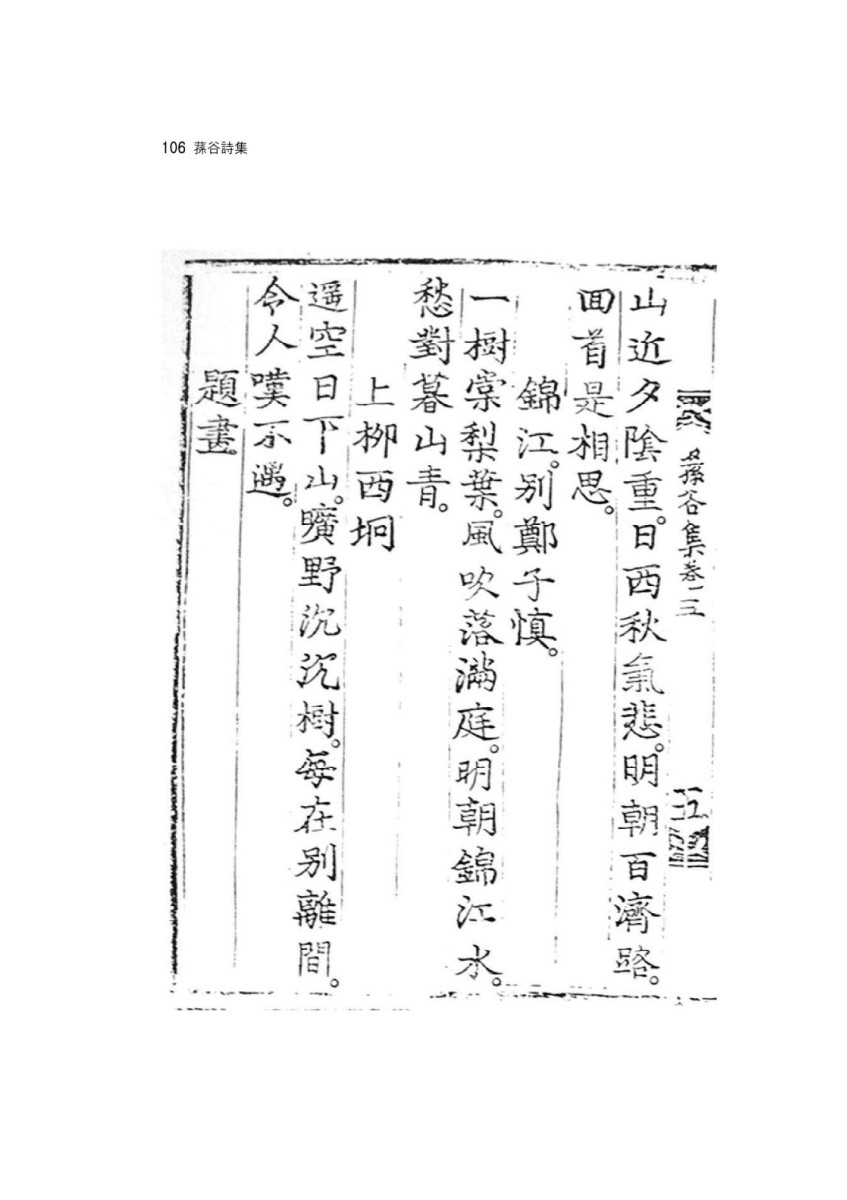 106 蓀谷詩集
蓀谷集卷三
五
山近夕陰重。日西秋氣悲。明朝百濟路。
回首是相思。
錦江。別鄭子慎。
一樹棠梨葉。風吹落滿庭。明朝錦江水。
愁對暮山青。
上柳西坰
遥空日下山。曠野沉沉樹。每在別離間。
令人嘆不遇。
題畫。